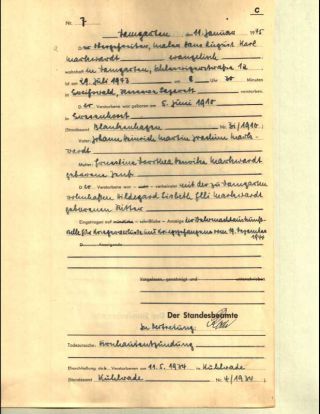 C
Nr. 7
Damgarten, den 11. Januar 1945
Der Obergefreiter, Maler Hans August Karl
Markwardt evangelisch
wohnhaft in Damgarten, Schleswigerstraße 12
ist am 29. Juli 1943 um 8 Uhr 30 Minuten
in Greifswald, Reserve Lazarett verstorben.
Der Verstorbene war geboren am 5. Juni 1910
in
(Standesamt Blankenhagen Nr. 31/1910)
Vater: Johann Heinrich Martin Joachim Mark-
wardt
Mutter: Ernestine Dorothea Henrike Markwardt
geborene
Der Verstorbene war verheiratet mit der zu Damgarten
wohnhaften Hildegard Lisbeth Elli Markwardt
geborenen Ritter
Eingetragen auf mündliche schriftliche Anzeige der Wehrmachtauskunft-
stelle für Kriegerverluste und Kriegsgefangene vom 9. Dezember
1944
D Anzeigende
Vorgelesen, genehmigt und unterschrieben
Der Standesbeamte
In Vertretung:
Todesursache: Hirnhautentzündung
Eheschließung de Verstorbenen am 11.5.1934 in Kuhlrade
(Standesamt Kuhlrade Nr. 4/1934)